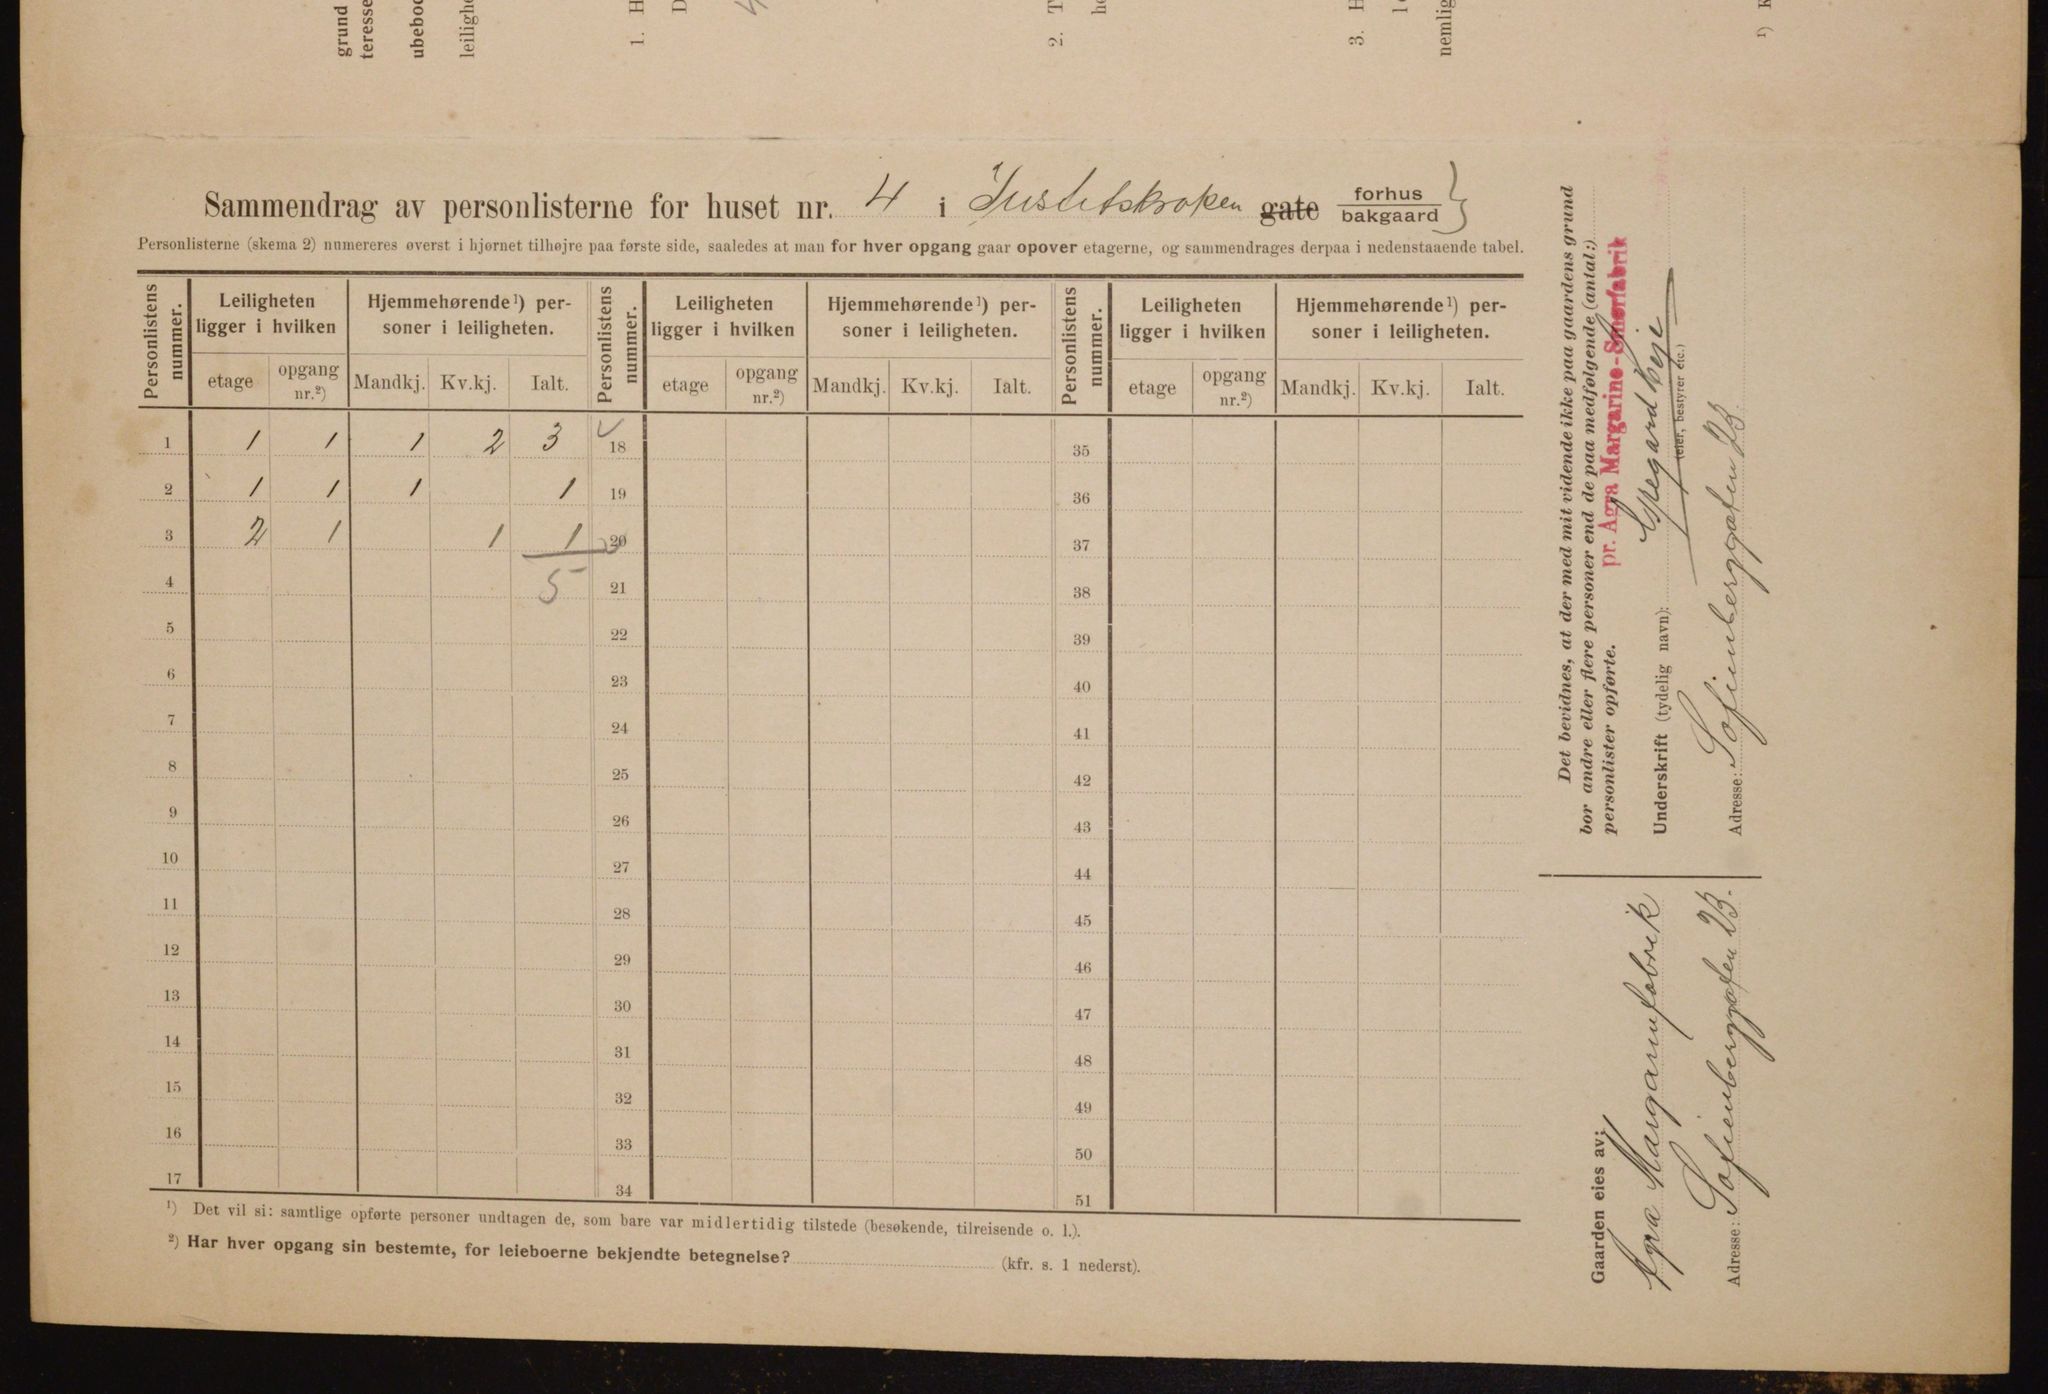 grund
teresse
ubeboe
leilighe
1. H
D
4
2. T
he
3. H
1
nemlig
¹) K
Sammendrag av personlisterne for huset nr. 4 i Justitskroken gate forhus bakgaard }
Personlisterne (skema 2) numereres øverst i hjørnet tilhøjre paa første side, saaledes at man for hver opgang gaar opover etagerne, og sammendrages derpaa i nedenstaaende tabel.
Personlistens nummer. Leiligheten ligger i hvilken Hjemmehørende¹) personer i leiligheten. Personlistens nummer. Leiligheten ligger i hvilken Hjemmehørende¹) personer i leiligheten. Personlistens nummer. Leiligheten ligger i hvilken Hjemmehørende¹) personer i leiligheten.
etage opgang nr.²) Mandkj. Kv.kj. Ialt. etage opgang nr.²) Mandkj. Kv.kj. Ialt. etage opgang nr.²) Mandkj. Kv.kj. Ialt.
1 1 1 1 2 3 18 35
2 1 1 1 1 19 36
3 2 1 1 1 20 37
4 5 21 38
5 22 39
6 23 40
7 24 41
8 25 42
9 26 43
10 27 44
11 28 45
12 29 46
13 30 47
14 31 48
15 32 49
16 33 50
17 34 51
¹) Det vil si: samtlige opførte personer undtagen de, som bare var midlertidig tilstede (besøkende, tilreisende o. l.).
²) Har hver opgang sin bestemte, for leieboerne bekjendte betegnelse? (kfr. s. 1 nederst).
Det bevidnes, at der med mit vidende ikke paa gaardens grund
bor andre eller flere personer end de paa medfølgende (antal:)
personlister opførte.
pr. Agra Margarine-Smørfabrik
Underskrift (tydelig navn):
(eier, bestyrer etc.)
Adresse: Sofienberggaten 23.
Gaarden eies av:
Agra Margarinfabrik
Adresse: Sofienberggaten 23.